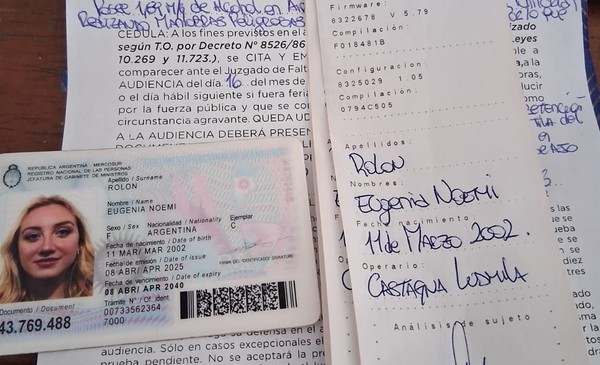 Posee 1,89 g/l de Alcohol en
Realizando Maniobras Peligrosas
CEDULA: A los fines previstos en el a
según T.O. por Decreto N° 8526/86
10.269 y 11.723.), se CITA Y EM
comparecer ante el Juzgado de Falt
AUDIENCIA del día 16 del mes de
o el día hábil siguiente si fuera feria
por la fuerza pública y que se con
circunstancia agravante. QUEDA UD
A LA AUDIENCIA DEBERÁ PRESEN
REPUBLICA ARGENTINA - MERCOSUR
REGISTRO NACIONAL DE LAS PERSONAS
JEFATURA DE GABINETE DE MINISTROS
Apellido / Surname
ROLON
Nombre / Name
EUGENIA NOEMI
Sexo / Sex Nacionalidad / Nationality Ejemplar
ARGENTINA C
Fecha de nacimiento / Date of birth
11 MAR/ MAR 2002
Fecha de emisión / Date of issue
08 ABR/ APR 2025
FIRMA DEL IDENTIFICADO/ SIGNATURE
Fecha de vencimiento / Date of expiry
08 ABR/ APR 2040
Documento / Document
43.769.488
Trámite N° / Of. ident.
00733562364
7000
su defensa en el a
audiencia. Sólo en casos excepcionales el
prueba pendiente. No se aceptará la pre
Firmware:
8322678 V 5.79
Compilación:
F018481B
Configuracion:
8325029 1.05
Compilación:
0794C505
Apellidos:
Rolon
Nombres:
Eugenia Noemi
Fecha nacimiento:
11 de Marzo 2002.
Operario:
Castagna Ludmila
Análisis de sujeto
de lo que
zado
Leyes
a la
oras,
ducir
detención
del
las
se
diez